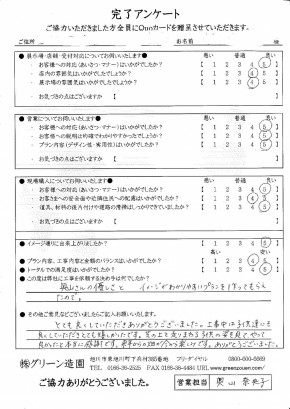 完了アンケート
ご協力いただきました方全員にQuoカードを贈呈させていただきます。
ご住所 お名前 様
●展示場・店頭・受付対応についてお伺いいたします● 悪い 普通 良い
・お客様への対応（あいさつ・マナー）はいかがでしたか？ 【 1 2 3 4 5 】
・店内の雰囲気はいかがでしたか？ 【 1 2 3 4 5 】
・展示場の雰囲気はいかがでしたか？ 【 1 2 3 4 5 】
・お気づきの点はございますか
●営業についてお伺いいたします● 悪い 普通 良い
・お客様への対応（あいさつ・マナー）はいかがでしたか？ 【 1 2 3 4 5 】
・お客様への説明は的確でわかりやすかったでしょうか？ 【 1 2 3 4 5 】
・プラン内容（デザイン性・実用性）はいかがですか？ 【 1 2 3 4 5 】
・お気づきの点はございますか
●現場職人についてお伺いいたします● 悪い 普通 良い
・お客様への対応（あいさつ・マナー）はいかがでしたか？ 【 1 2 3 4 5 】
・お客さまへの安全面や近隣住民への配慮はいかがでしたか？ 【 1 2 3 4 5 】
・道具、材料の後片付けや現場の清掃はしっかりできていましたか？ 【 1 2 3 4 5 】
・お気づきの点はございますか
●イメージ通りに出来上がりましたか？ 【 1 2 3 4 5 】
高い 普通 安い
●プラン内容、工事内容と金額のバランスはいかがですか？ 【 1 2 3 4 5 】
●トータルでの満足度はいかがでしたか？ 【 1 2 3 4 5 】
●この度は弊社に工事を依頼する決め手は何でしたか？
奥山さんの優しさと イメージがわかりやすいプランを作ってもらえ
たので。
●その他ご意見などございましたらご記入お願いいたします。
とても良くしていただきありがとうございました。工事中は子供達にも
良くしていただきとても嬉しかったです。
㈱グリーン造園
旭川市東旭川町下兵村385番地 フリーダイヤル 0800-800-5569
TEL 0166-36-2625 FAX 0166-36-4484 URL www.greenzouen.com
ご協力ありがとうございました。
営業担当 奥山 奈央子